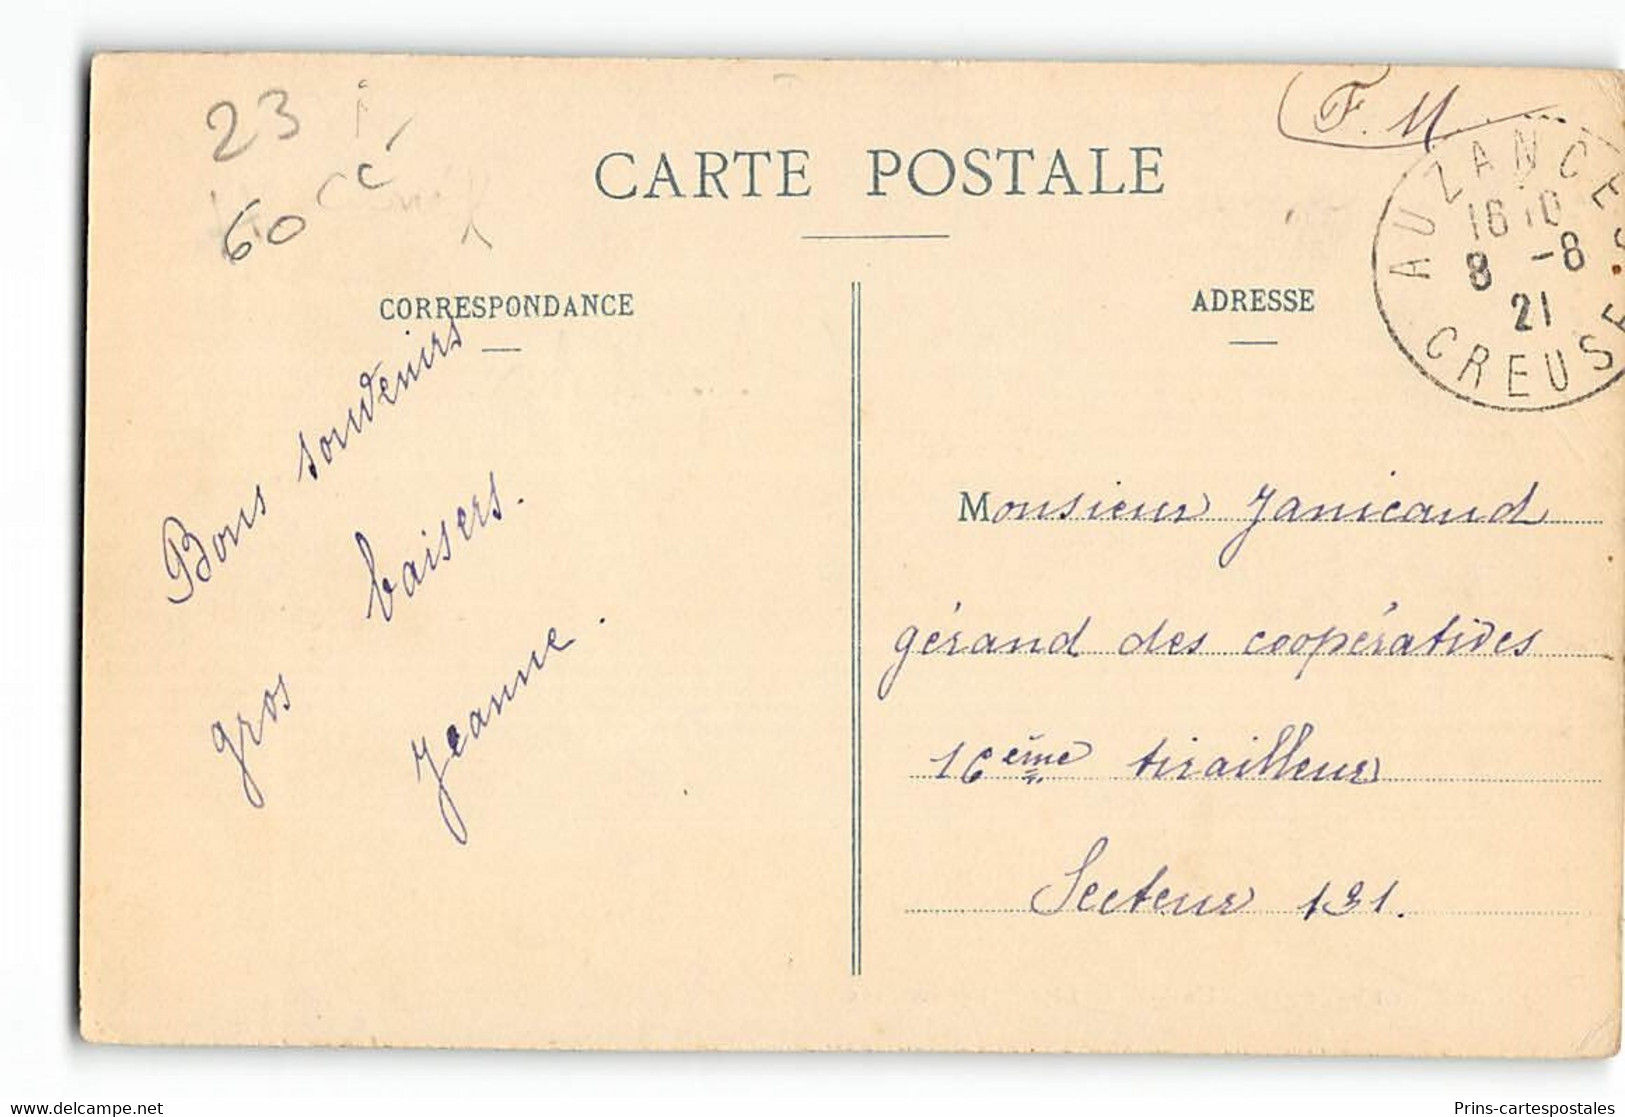 23
60
F. M.
CARTE POSTALE
AUZANCES
16 10
8 -8
21
CREUSE
CORRESPONDANCE
ADRESSE
Bons souvenirs
gros baisers.
Jeanne.
Monsieur Janicaud
gérand des coopératives
16ème tirailleur
Secteur 131.
www.delcampe.net
Prins-cartespostales